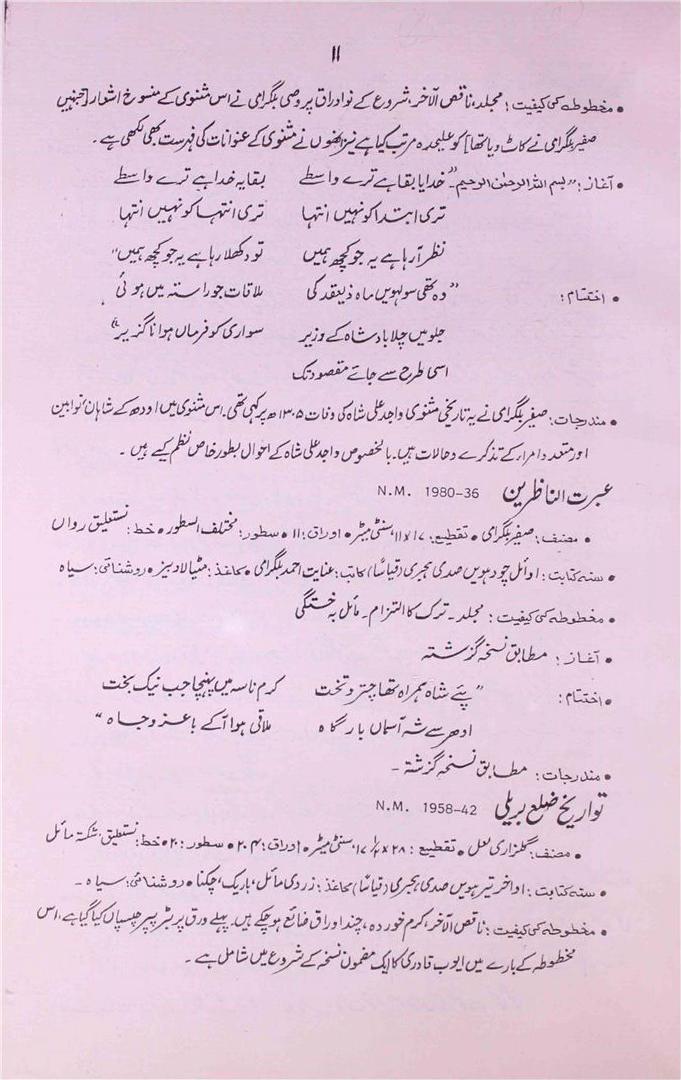 ۱۱
• مخطوطہ کی کیفیت: مجلد، ناقص الآخر، شروع کے نو اوراق پر وصی بلگرامی نے اس مثنوی کے منسوخ اشعار [جنہیں
صفیر بلگرامی نے کاٹ دیا تھا] کو علیحدہ مرتب کیا ہے نیز انھوں نے مثنوی کے عنوانات کی فہرست بھی لکھی ہے۔
• آغاز: "بسم اللہ الرحمٰن الرحیم۔" خدایا بقا ہے ترے واسطے بقا یہ خدا ہے ترے واسطے
تری ابتدا کو نہیں انتہا تری انتہا کو نہیں انتہا
نظر آرہا ہے یہ جو کچھ ہمیں تو دکھلا رہا ہے یہ جو کچھ ہمیں"
• اختتام: "وہ تھی سولہویں ماہ ذیقعد کی ملاقات جو راستہ میں ہوئی
جلو میں چلا بادشاہ کے وزیر سواری کو فرماں ہوا ناگزیر"
اسی طرح سے جاتے مقصود تک
• مندرجات: صفیر بلگرامی نے یہ تاریخی مثنوی واجد علی شاہ کی وفات ۱۳۰۵ھ پر کہی تھی۔ اس مثنوی میں اودھ کے شاہان، نوابین
اور متعدد امراء کے تذکرے و حالات ہیں۔ بالخصوص واجد علی شاہ کے احوال بطور خاص نظم کیے ہیں۔
عبرت الناظرین N.M. 1980-36
• مصنف: صفیر بلگرامی • تقطیع: ۱۷ x ۱۱، سنٹی میٹر • اوراق: ۱۱ • سطور: مختلف السطور • خط: نستعلیق رواں
• سنہ کتابت: اوائل چودہویں صدی ہجری (قیاساً) کاتب: عنایت احمد بلگرامی • کاغذ: مٹیالا دبیز • روشنائی: سیاہ
• مخطوطہ کی کیفیت: مجلد۔ ترک کا التزام۔ مائل بہ خستگی
• آغاز: مطابق نسخہ گزشتہ
• اختتام: "پئے شاہ ہمراہ تھا چتر و تخت کرم ناسہ میں پہنچا جب نیک بخت
ادھر سے شہ آسماں بارگاہ ملاقی ہوا آکے باعز و جاہ"
• مندرجات: مطابق نسخہ گزشتہ۔
تواریخ ضلع بریلی N.M. 1958-42
• مصنف: گلزاری لعل • تقطیع: ۲۸ x ۱۷ ۱/۲، سنٹی میٹر • اوراق: ۲۰۴ • سطور: ۲۰ • خط: نستعلیق، شکستہ مائل
• سنہ کتابت: اواخر تیرہویں صدی ہجری (قیاساً) کاغذ: زردی مائل، باریک، چکنا • روشنائی: سیاہ۔
• مخطوطہ کی کیفیت: ناقص الآخر، کرم خوردہ، چند اوراق ضائع ہوچکے ہیں۔ پہلے ورق پر بٹر پیپر چسپاں کیا گیا ہے، اس
مخطوطہ کے بارے میں ایوب قادری کا ایک مضمون نسخہ کے شروع میں شامل ہے۔